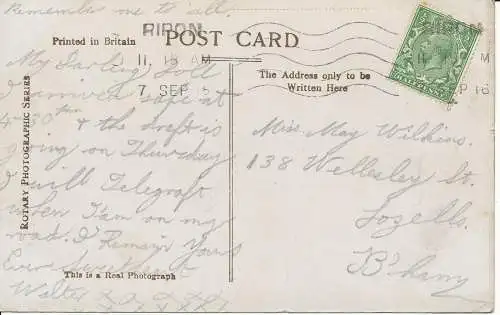 Remember me to all.
RIPON
11. 15 AM
7 SEP 15
Printed in Britain
POST CARD
The Address only to be
Written Here
ROTARY PHOTOGRAPHIC SERIES
My Darling Doll
I arrived safe at
4-30 & the draft is
going on Thursday
I will Telegraft
when I am on my
road. I Remain Yours
Ever Sweetheart
Walter x x x x x x
This is a Real Photograph
Miss May Wilkins.
138 Wellesley St.
Lozells.
B'ham